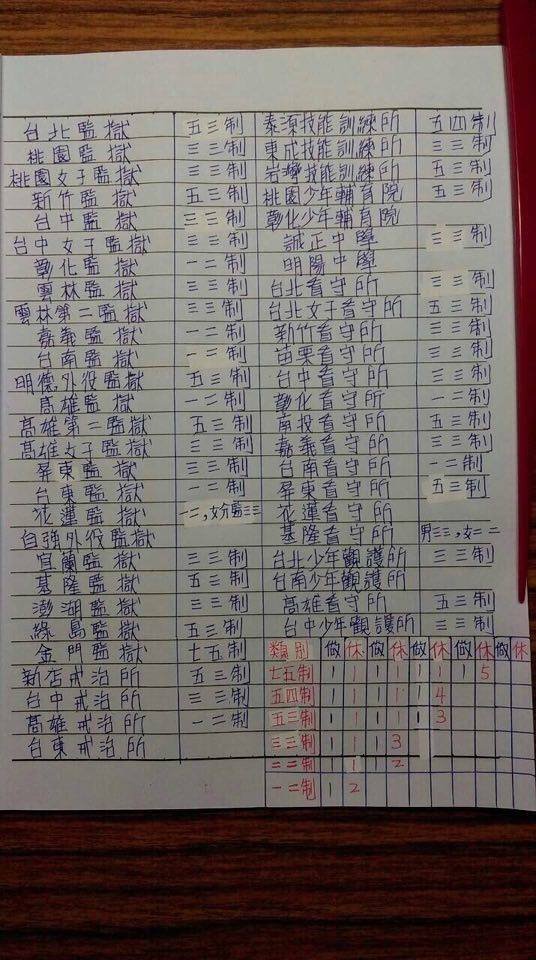 台北監獄 五三制 泰源技能訓練所 五四制
桃園監獄 三三制 東成技能訓練所 三三制
桃園女子監獄 三三制 岩灣技能訓練所 五三制
新竹監獄 五三制 桃園少年輔育院 五三制
台中監獄 三三制 彰化少年輔育院
台中女子監獄 三三制 誠正中學 三三制
彰化監獄 一二制 明陽中學
雲林監獄 三三制 台北看守所 三三制
雲林第二監獄 三三制 台北女子看守所 五三制
嘉義監獄 一二制 新竹看守所 三三制
台南監獄 一二制 苗栗看守所 三三制
明德外役監獄 五三制 台中看守所 三三制
高雄監獄 一二制 彰化看守所 一二制
高雄第二監獄 五三制 南投看守所 五三制
高雄女子監獄 三三制 嘉義看守所 三三制
屏東監獄 三三制 台南看守所 一二制
台東監獄 一二制 屏東看守所 五三制
花蓮監獄 一二,女分監三三 花蓮看守所
自強外役監獄 基隆看守所 男三三,女二二
宜蘭監獄 三三制 台北少年觀護所 三三制
基隆監獄 五三制 台南少年觀護所
澎湖監獄 三三制 高雄看守所 五三制
綠島監獄 五三制 台中少年觀護所 三三制
金門監獄 七五制 類別 做 休 做 休 做 休 做 休 做 休
新店戒治所 五三制 七五制 1 1 1 1 1 1 1 5
台中戒治所 三三制 五四制 1 1 1 1 1 4
高雄戒治所 一二制 五三制 1 1 1 1 1 3
台東戒治所 三三制 1 1 1 3
二二制 1 1 1 2
一二制 1 2